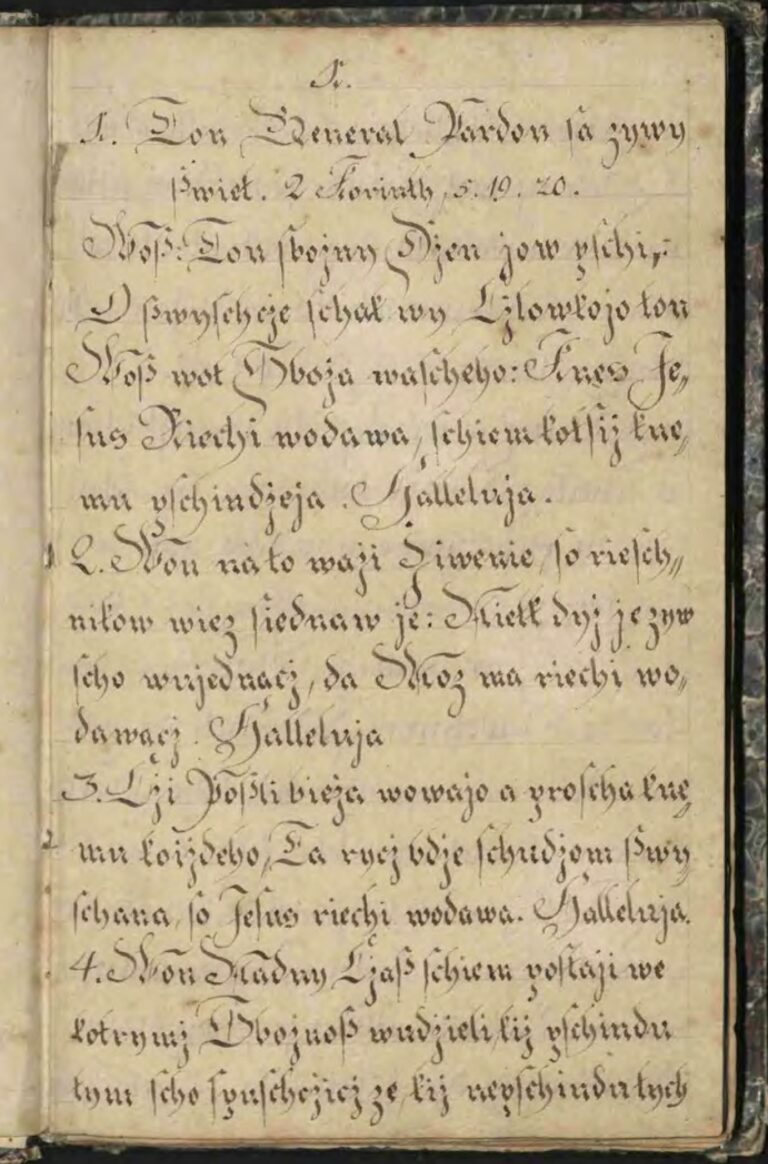 1.
1. Ton General Pardon sa zywy
ßwiet. 2 Korinth, 5. 19. 20.
Woß: Ton sbożny Dżen jow pschi,:
O ßwyschcże schak wy Cżlowkojo ton
Woß wot Bboża wascheho: Knes Je,,
sus Riechi wodawa, schiem kotsiż kne,,
mu pschindżeja. Halleluja.
2. Won na to ważi Żiwenie, so riesch,,
nikow wiez siednaw je: Kielk dyż je zyw
scho wujednacż, da Moz ma riechi wo,,
dawacż. Halleluja
3. Cżi Poßli bieża wowajo a proscha kne,
mu koiżdeho, Ta rycż bdże schudżom ßwy
schana, so Jesus riechi wodawa. Halleluja.
4. Won Kadny Cżaß schiem postaji we
kotrymż Bbożnoß wudżieli, kiż pschindu
tym scho spuschcżicż ze, kiż nepschindu tych